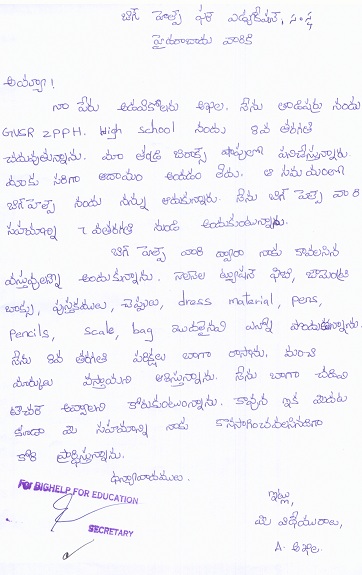 బిగ్ హెల్ప్ ఫర్ ఎడ్యుకేషన్,
హైదరాబాదు వారికి
అయ్యా!
నా పేరు అఖిల. నేను నందు
GNSR ZPPH. High school నందు 8వ తరగతి
చదువుతున్నాను. మా తండ్రి పనిచేస్తున్నారు.
మాకు సరిగా ఆదాయం ఉండడం లేదు. ఆ సమయంలో
బిగ్ హెల్ప్ నందు నన్ను ఆదుకున్నారు. నేను బిగ్ హెల్ప్ వారి
సహాయాన్ని 7వ తరగతి నుండి అందుకుంటున్నాను.
బిగ్ హెల్ప్ వారి ద్వారా నాకు కావలసిన
వస్తువులన్నీ అందుకున్నాను. నెలనెల ట్యూషన్ ఫీజు, జామెంట్రీ
బాక్సు, పుస్తకములు, చెప్పులు, dress material, pens,
pencils, scale, bag మొదలైనవి ఎన్నో పొందుతున్నాను.
నేను 8వ తరగతి పరీక్షలు బాగా రాసాను. మంచి
మార్కులు వస్తాయని ఆశిస్తున్నాను. నేను బాగా చదివి
టీచర్ అవ్వాలని కోరుకుంటున్నాను. కావున ఇక మీదట
కూడా మీ సహాయాన్ని నాకు కొనసాగించవలసినదిగా
కోరి ప్రార్థిస్తున్నాను.
ధన్యవాదములు.
For BIGHELP FOR EDUCATION
SECRETARY
ఇట్లు,
మీ విధేయురాలు,
A. అఖిల.